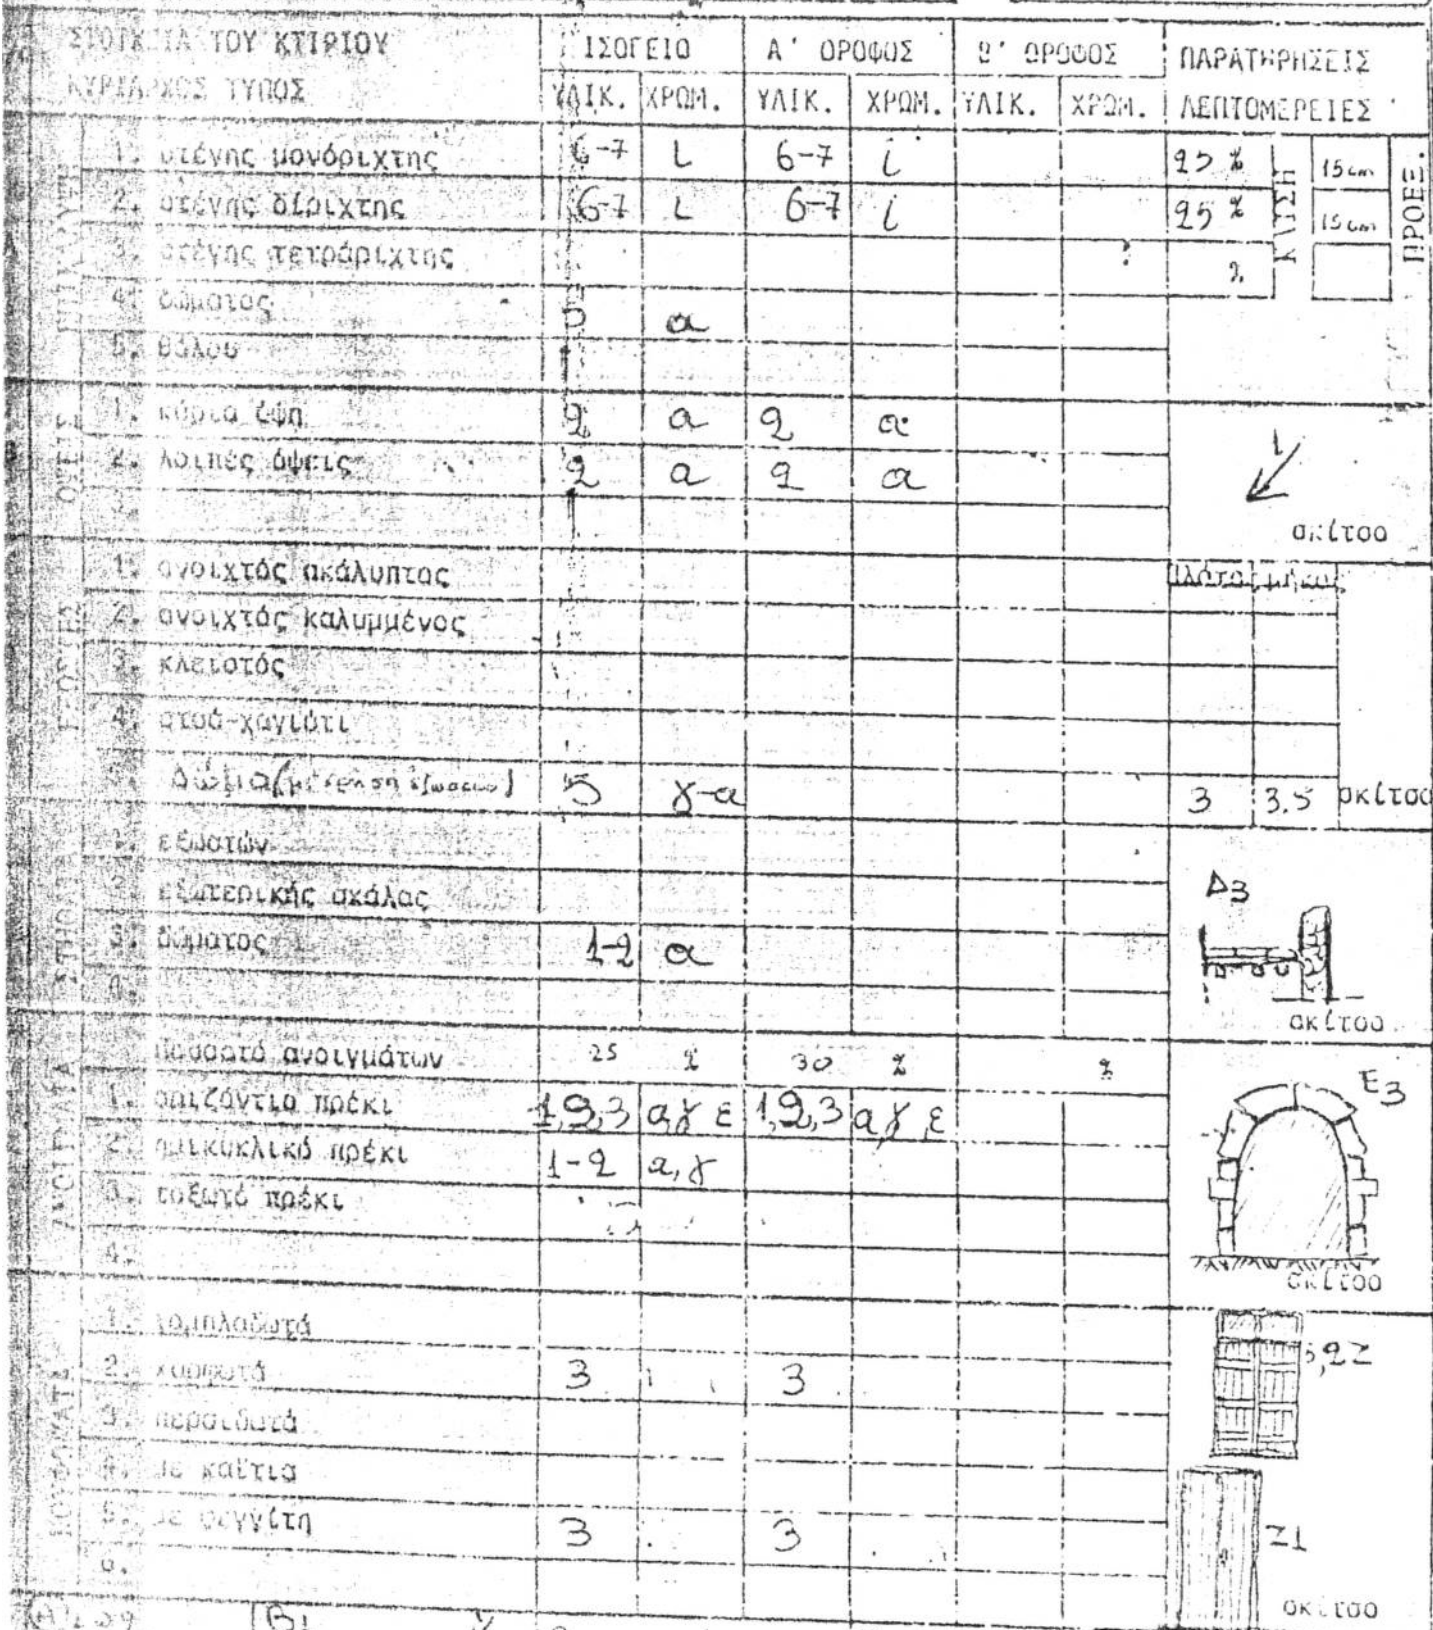 ΣΤΟΙΧΕΙΑ ΤΟΥ ΚΤΙΡΙΟΥ ΙΣΟΓΕΙΟ Α' ΟΡΟΦΟΣ Β' ΟΡΟΦΟΣ ΠΑΡΑΤΗΡΗΣΕΙΣ
ΚΥΡΙΑΡΧΟΣ ΤΥΠΟΣ ΥΛΙΚ. ΧΡΩΜ. ΥΛΙΚ. ΧΡΩΜ. ΥΛΙΚ. ΧΡΩΜ. ΛΕΠΤΟΜΕΡΕΙΕΣ
1. στέγης μονόριχτης 6-7 ι 6-7 ι 25 % ΚΛΙΣΗ 15 cm ΠΡΟΕΞ.
2. στέγης δίριχτης 6-7 ι 6-7 ι 25 % 15 cm
3. στέγης τετράριχτης %
4. δώματος 5 α
5. θόλου
ΟΨΕΙΣ
1. κύρια όψη 2 α 2 α
2. λοιπές όψεις 2 α 2 α
3.
σκίτσο
1. ανοιχτός ακάλυπτος πλάτος μήκος
2. ανοιχτός καλυμμένος
3. κλειστός
4. στοά-χαγιάτι
5. Δώμα 5 γ-α 3 3.5 σκίτσο
1. εξωστών
2. εξωτερικής σκάλας Δ3
3. δώματος 1-2 α
σκίτσο
ΑΝΟΙΓΜΑΤΑ
Ποσοστό ανοιγμάτων 25 % 30 % %
1. οριζόντιο πρέκι 1,2,3 α,γ ε 1,2,3 α,γ,ε Ε3
2. ημικυκλικό πρέκι 1-2 α,γ
3. τοξωτό πρέκι
4.
σκίτσο
ΚΟΥΦΩΜΑΤΑ
1. ταμπλαδωτά
2. καρφωτά 3 3
3. περσιδωτά
4. με καΐτια
5. με φεγγίτη 3 3 Ζ1
6.
σκίτσο